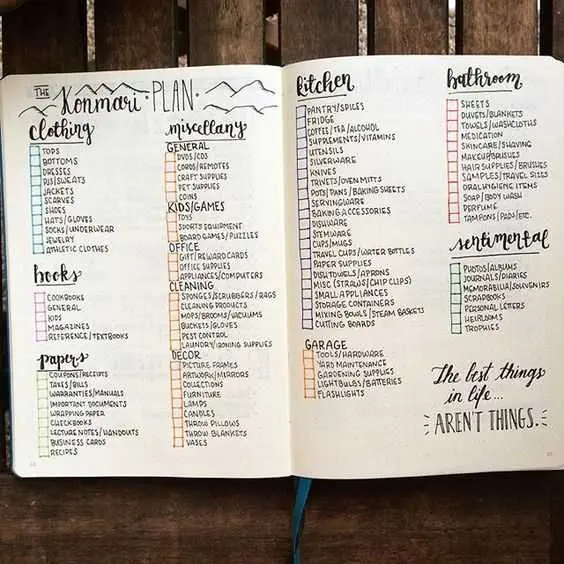 THE Konmari • PLAN •
clothing
TOPS
BOTTOMS
DRESSES
PJS/SWEATS
JACKETS
SCARVES
SHOES
HATS/GLOVES
SOCKS/UNDERWEAR
JEWELRY
ATHLETIC CLOTHES
books
COOKBOOKS
GENERAL
KIDS
MAGAZINES
REFERENCE/TEXTBOOKS
papers
COUPONS/RECEIPTS
TAXES/BILLS
WARRANTIES/MANUALS
IMPORTANT DOCUMENTS
WRAPPING PAPER
CHECKBOOKS
LECTURE NOTES/HANDOUTS
BUSINESS CARDS
RECIPES
miscellany
GENERAL
DVDS/CDS
CORDS/REMOTES
CRAFT SUPPLIES
PET SUPPLIES
COINS
KIDS/GAMES
TOYS
SPORTS EQUIPMENT
BOARD GAMES/PUZZLES
OFFICE
GIFT/REWARD CARDS
OFFICE SUPPLIES
APPLIANCES/COMPUTERS
CLEANING
SPONGES/SCRUBBERS/RAGS
CLEANING PRODUCTS
MOPS/BROOMS/VACUUMS
BUCKETS/GLOVES
PEST CONTROL
LAUNDRY/IRONING SUPPLIES
DECOR
PICTURE FRAMES
ARTWORK/MIRRORS
COLLECTIONS
FURNITURE
LAMPS
CANDLES
THROW PILLOWS
THROW BLANKETS
VASES
kitchen
PANTRY/SPICES
FRIDGE
COFFEE/TEA/ALCOHOL
SUPPLEMENTS/VITAMINS
UTENSILS
SILVERWARE
KNIVES
TRIVETS/OVEN MITTS
POTS/PANS/BAKING SHEETS
SERVINGWARE
BAKING ACCESSORIES
DISHWARE
STEMWARE
CUPS/MUGS
TRAVEL CUPS/WATER BOTTLES
PAPER SUPPLIES
DISH TOWELS/APRONS
MISC (STRAWS/CHIP CLIPS)
SMALL APPLIANCES
STORAGE CONTAINERS
MIXING BOWLS/STEAM BASKETS
CUTTING BOARDS
GARAGE
TOOLS/HARDWARE
YARD MAINTENANCE
GARDENING SUPPLIES
LIGHTBULBS/BATTERIES
FLASHLIGHTS
bathroom
SHEETS
DUVETS/BLANKETS
TOWELS/WASHCLOTHS
MEDICATION
SKINCARE/SHAVING
MAKEUP/BRUSHES
HAIR SUPPLIES/BRUSHES
SAMPLES/TRAVEL SIZES
ORAL HYGIENE ITEMS
SOAP/BODY WASH
PERFUME
TAMPONS/PADS/ETC.
sentimental
PHOTOS/ALBUMS
JOURNALS/DIARIES
MEMORABILIA/SOUVENIRS
SCRAPBOOKS
PERSONAL LETTERS
HEIRLOOMS
TROPHIES
The best things
in life...
AREN'T THINGS.